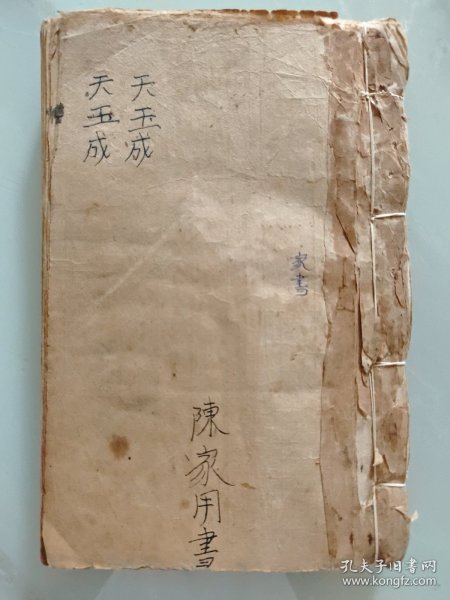 天玉成
天玉成
家書
陳家用書
孔夫子旧书网
www.kongfz.com